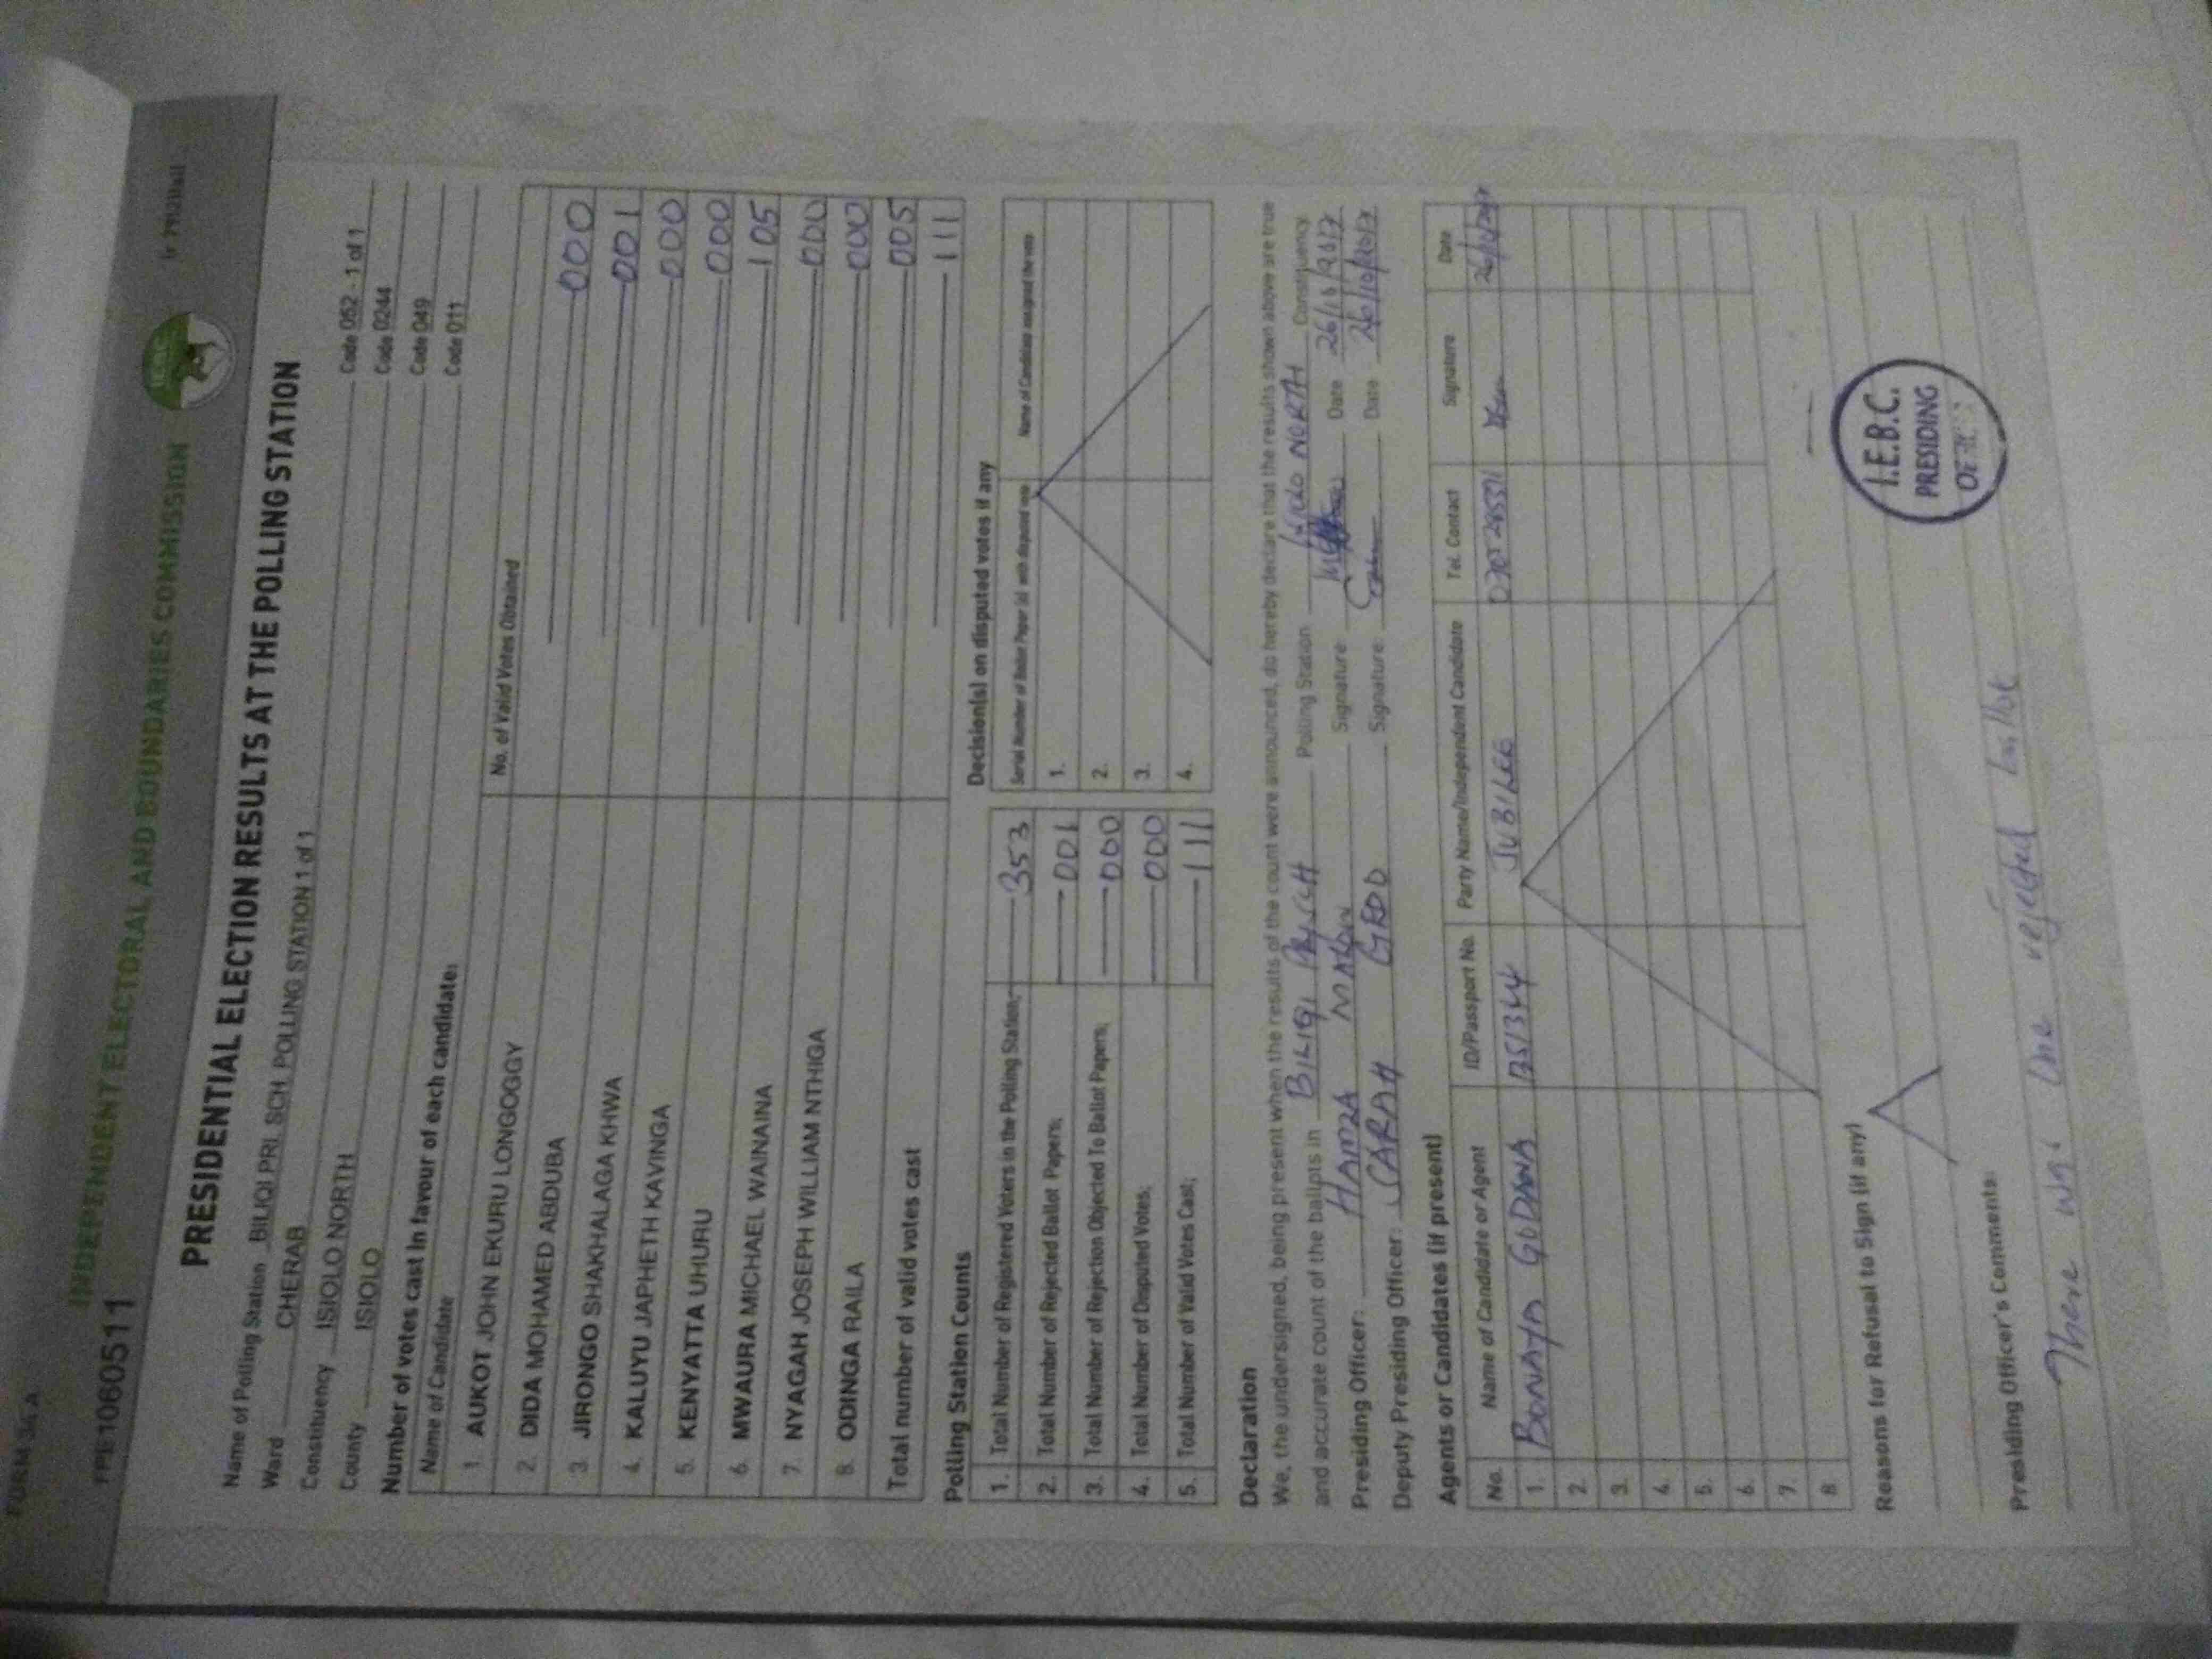 FORM 34 A
INDEPENDENT ELECTORAL AND BOUNDARIES COMMISSION
FPE1060511
PRESIDENTIAL ELECTION RESULTS AT THE POLLING STATION
Name of Polling Station BILIQI PRI. SCH POLLING STATION 1 of 1 Code 052 - 1 of 1
Ward CHERAB Code 0244
Constituency ISIOLO NORTH Code 049
County ISIOLO Code 011
Number of votes cast in favour of each candidate:
Name of Candidate No. of Valid Votes Obtained
1. AUKOT JOHN EKURU LONGOGGY 000
2. DIDA MOHAMED ABDUBA 001
3. JIRONGO SHAKHALAGA KHWA 000
4. KALUYU JAPHETH KAVINGA 000
5. KENYATTA UHURU 105
6. MWAURA MICHAEL WAINAINA 000
7. NYAGAH JOSEPH WILLIAM NTHIGA 000
8. ODINGA RAILA 005
Total number of valid votes cast 111
Polling Station Counts
1. Total Number of Registered Voters in the Polling Station; 353
2. Total Number of Rejected Ballot Papers; 001
3. Total Number of Rejection Objected To Ballot Papers; 000
4. Total Number of Disputed Votes; 000
5. Total Number of Valid Votes Cast; 111
Decision(s) on disputed votes if any
Serial Number of Ballot Paper (s) with disputed vote Name of Candidate assigned the vote
1.
2.
3.
4.
Declaration
We, the undersigned, being present when the results of the count were announced, do hereby declare that the results shown above are true
and accurate count of the ballots in BILIQI PRI SCH Polling Station ISIOLO NORTH Constituency
Presiding Officer: HAMZA Signature Date 26/10/2017
Deputy Presiding Officer: SARAH GEDO Signature: Date 26/10/2017
Agents or Candidates (if present)
No. Name of Candidate or Agent ID/Passport No. Party Name/Independent Candidate Tel. Contact Signature Date
1. BONAYA GODANA JUBILEE 26/10/2017
2.
3.
4.
5.
6.
7.
8
Reasons for Refusal to Sign (if any)
I.E.B.C.
PRESIDING
Presiding Officer's Comments:
There was one rejected ballot